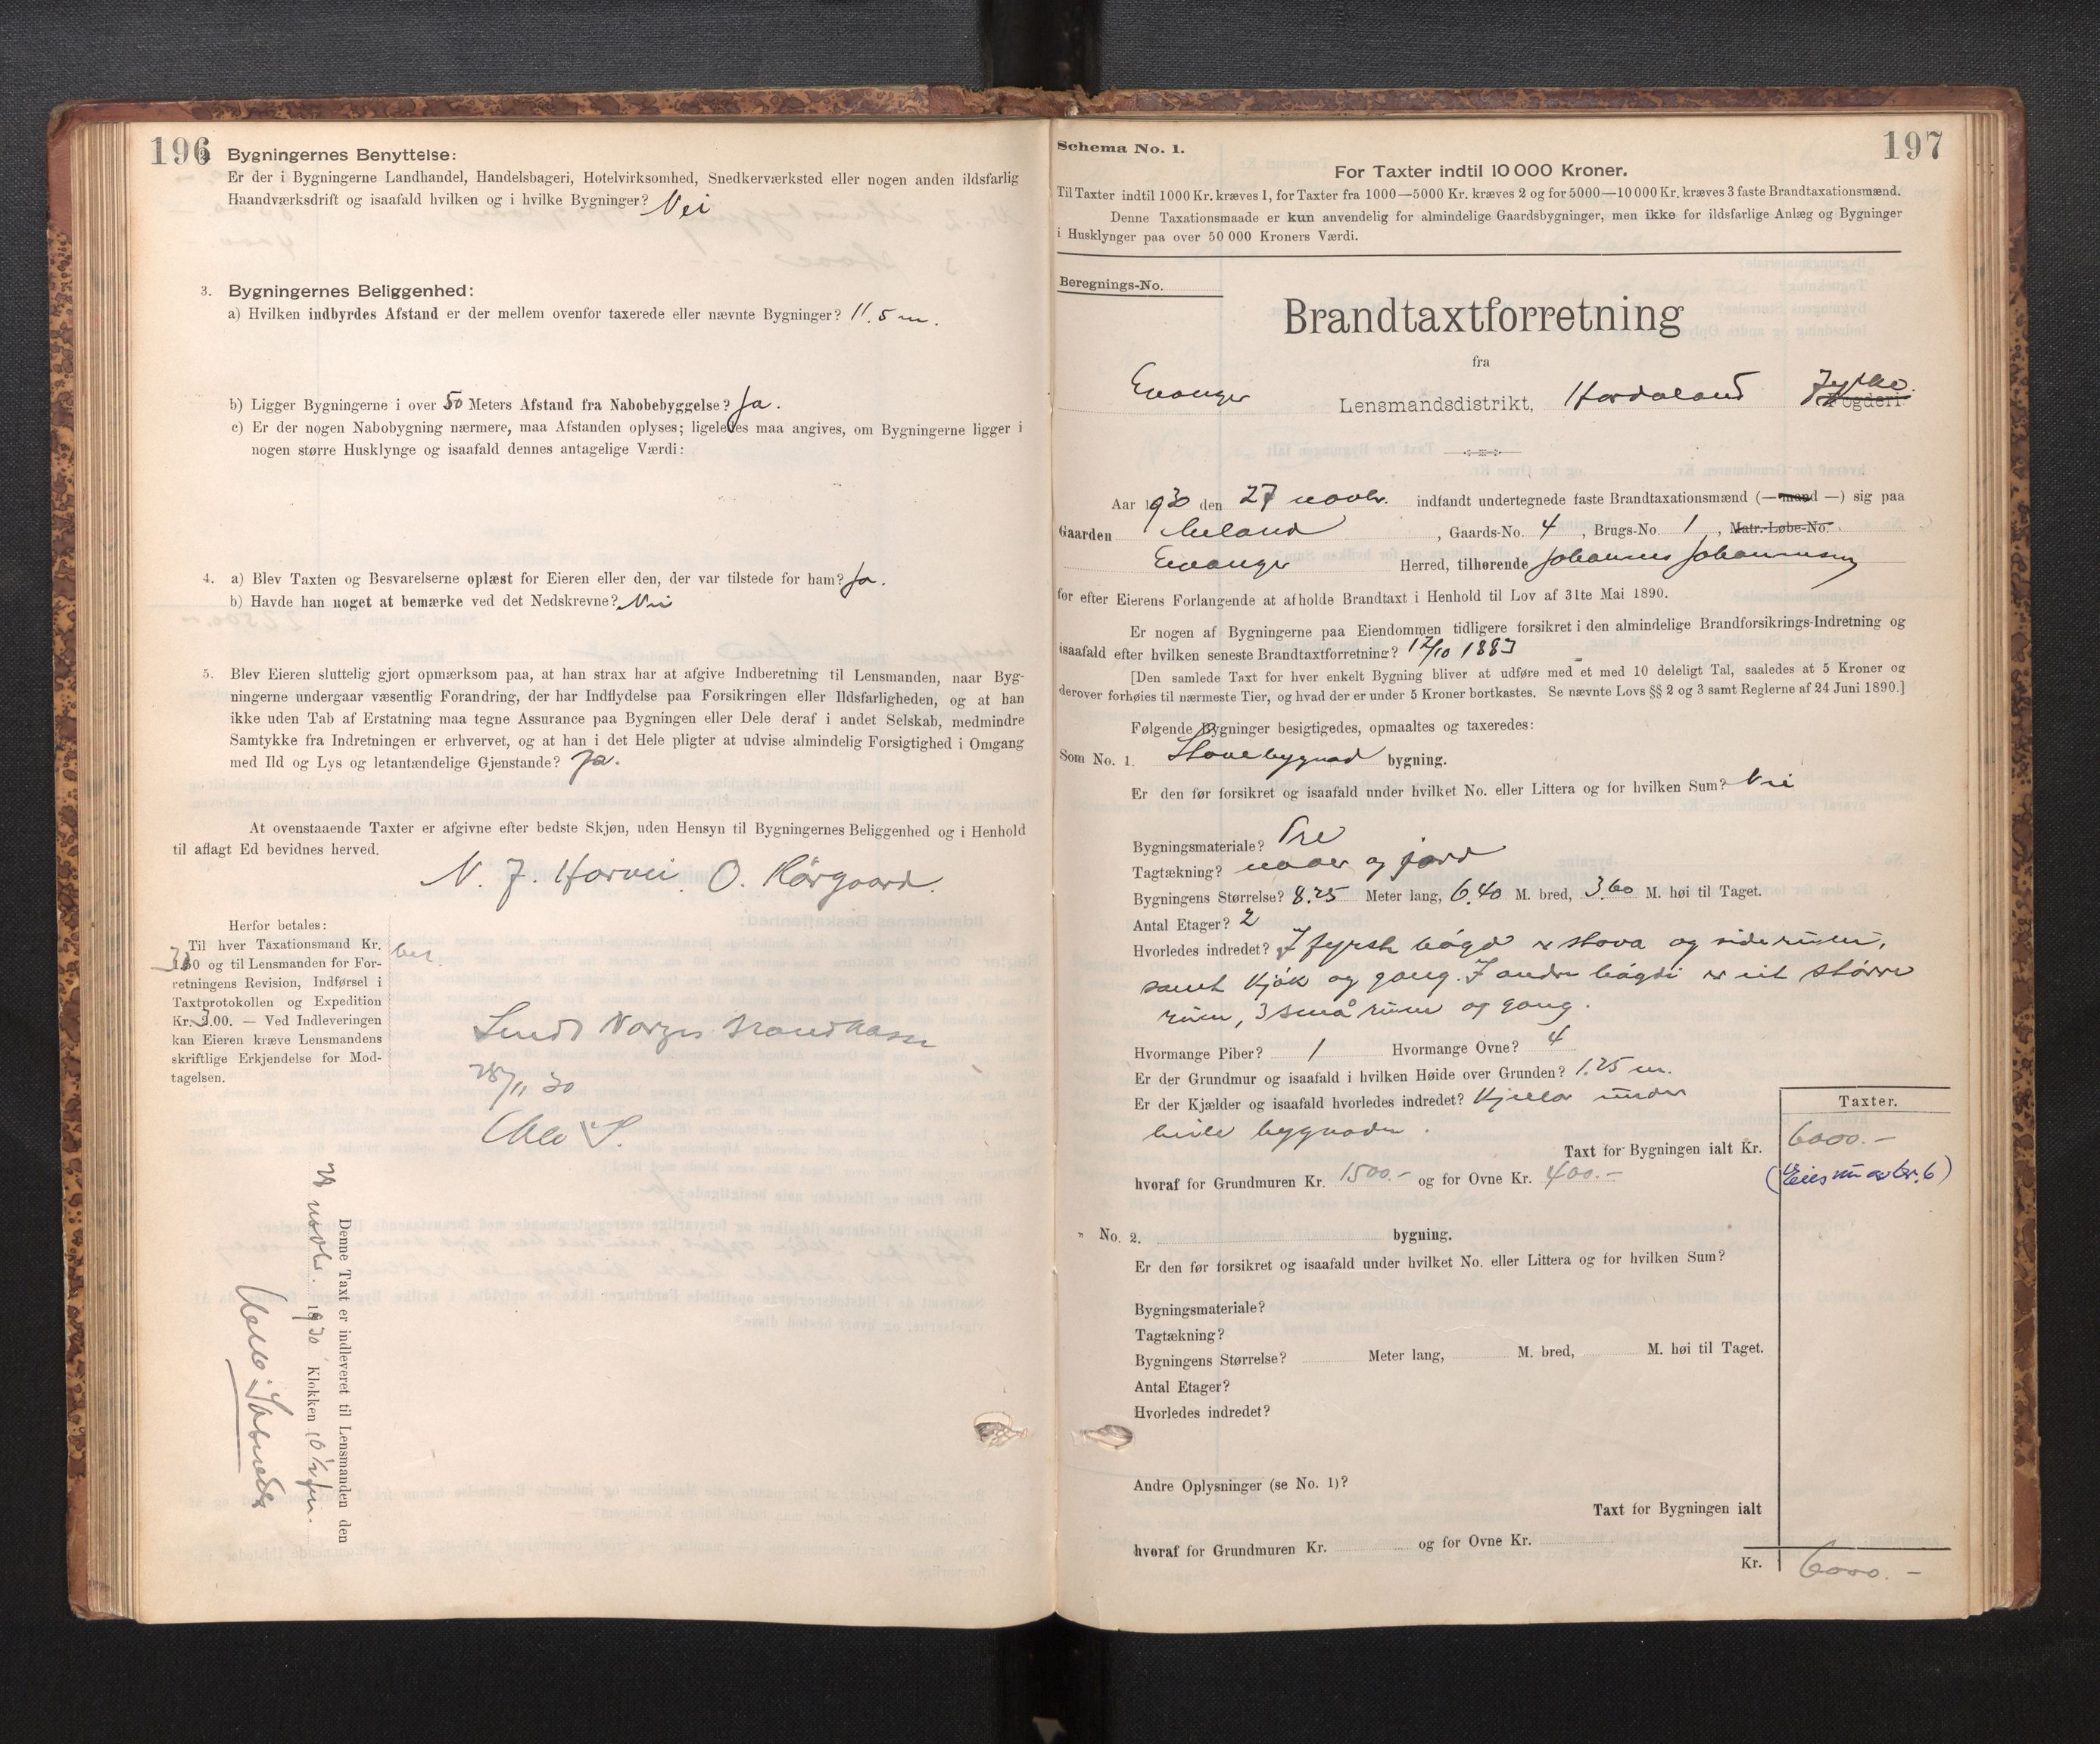 196
Bygningernes Benyttelse:
Er der i Bygningerne Landhandel, Handelsbageri, Hotelvirksomhed, Snedkerværksted eller nogen anden ildsfarlig
Haandværksdrift og isaafald hvilken og i hvilke Bygninger? Nei
3. Bygningernes Beliggenhed:
a) Hvilken indbyrdes Afstand er der mellem ovenfor taxerede eller nævnte Bygninger? 11.5 m.
b) Ligger Bygningerne i over 50 Meters Afstand fra Nabobebyggelse? Ja.
c) Er der nogen Nabobygning nærmere, maa Afstanden oplyses; ligeledes maa angives, om Bygningerne ligger i
nogen større Husklynge og isaafald dennes antagelige Værdi:
4. a) Blev Taxten og Besvarelserne oplæst for Eieren eller den, der var tilstede for ham? Ja.
b) Havde han noget at bemærke ved det Nedskrevne? Nei
5. Blev Eieren sluttelig gjort opmærksom paa, at han strax har at afgive Indberetning til Lensmanden, naar Byg-
ningerne undergaar væsentlig Forandring, der har Indflydelse paa Forsikringen eller Ildsfarligheden, og at han
ikke uden Tab af Erstatning maa tegne Assurance paa Bygningen eller Dele deraf i andet Selskab, medmindre
Samtykke fra Indretningen er erhvervet, og at han i det Hele pligter at udvise almindelig Forsigtighed i Omgang
med Ild og Lys og letantændelige Gjenstande? Ja.
At ovenstaaende Taxter er afgivne efter bedste Skjøn, uden Hensyn til Bygningernes Beliggenhed og i Henhold
til aflagt Ed bevidnes herved.
N. J. Horvei. O. Hørgaard.
Herfor betales:
Til hver Taxationsmand Kr.
1.50 og til Lensmanden for For-
retningens Revision, Indførsel i
Taxtprotokollen og Expedition
Kr. 2.00. — Ved Indleveringen
kan Eieren kræve Lensmandens
skriftlige Erkjendelse for Mod-
tagelsen.
bet.
Sendt Norges Brandkasse
28/11 30
Denne Taxt er indleveret til Lensmanden den
28 novbr. 1930 Klokken 10 1/2 fm.
197
Schema No. 1.
For Taxter indtil 10 000 Kroner.
Til Taxter indtil 1000 Kr. kræves 1, for Taxter fra 1000—5000 Kr. kræves 2 og for 5000—10 000 Kr. kræves 3 faste Brandtaxationsmænd.
Denne Taxationsmaade er kun anvendelig for almindelige Gaardsbygninger, men ikke for ildsfarlige Anlæg og Bygninger
i Husklynger paa over 50 000 Kroners Værdi.
Beregnings-No.
Brandtaxtforretning
fra
Evanger Lensmandsdistrikt, Hordaland Fylke. Fogderi
Aar 1930 den 27 novbr. indfandt undertegnede faste Brandtaxationsmænd (—mand —) sig paa
Gaarden Mæland, Gaards-No. 4, Brugs-No. 1, Matr.-Løbe-No.
Evanger Herred, tilhørende Johannes Johannesen
for efter Eierens Forlangende at afholde Brandtaxt i Henhold til Lov af 31te Mai 1890.
Er nogen af Bygningerne paa Eiendommen tidligere forsikret i den almindelige Brandforsikrings-Indretning og
isaafald efter hvilken seneste Brandtaxtforretning? 12/10 1883
[Den samlede Taxt for hver enkelt Bygning bliver at udføre med et med 10 deleligt Tal, saaledes at 5 Kroner og
derover forhøies til nærmeste Tier, og hvad der er under 5 Kroner bortkastes. Se nævnte Lovs §§ 2 og 3 samt Reglerne af 24 Juni 1890.]
Følgende Bygninger besigtigedes, opmaaltes og taxeredes:
Som No. 1. Stovebygnad bygning.
Er den før forsikret og isaafald under hvilket No. eller Littera og for hvilken Sum? Nei
Bygningsmateriale? Tre
Tagtækning? never og jord
Bygningens Størrelse? 8.25 Meter lang, 6.40 M. bred, 3.60 M. høi til Taget.
Antal Etager? 2
Hvorledes indredet? I fyrste høgd er stova og siderum,
samt kjøk og gang. I andre høgdi er eit større
rum, 3 små rum og gang.
Hvormange Piber? 1 Hvormange Ovne? 4
Er der Grundmur og isaafald i hvilken Høide over Grunden? 1.25 m.
Er der Kjælder og isaafald hvorledes indredet? Kjellar under
heile bygnaden.
Taxter.
Taxt for Bygningen ialt Kr. 6000.-
hvoraf for Grundmuren Kr. 1500.- og for Ovne Kr. 400.-
(Eies nu av br. 6)
" No. 2. bygning.
Er den før forsikret og isaafald under hvilket No. eller Littera og for hvilken Sum?
Bygningsmateriale?
Tagtækning?
Bygningens Størrelse? Meter lang, M. bred, M. høi til Taget.
Antal Etager?
Hvorledes indredet?
Andre Oplysninger (se No. 1)?
Taxt for Bygningen ialt
hvoraf for Grundmuren Kr. og for Ovne Kr.
Kr. 6000.-